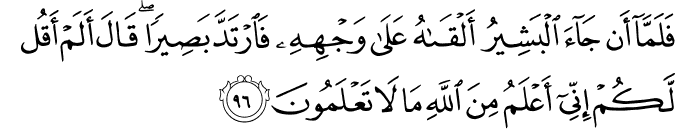 فَلَمَّآ أَن جَآءَ ٱلْبَشِيرُ أَلْقَىٰهُ عَلَىٰ وَجْهِهِۦ فَٱرْتَدَّ بَصِيرًا ۖ قَالَ أَلَمْ أَقُل
لَّكُمْ إِنِّىٓ أَعْلَمُ مِنَ ٱللَّهِ مَا لَا تَعْلَمُونَ ۝٩٦